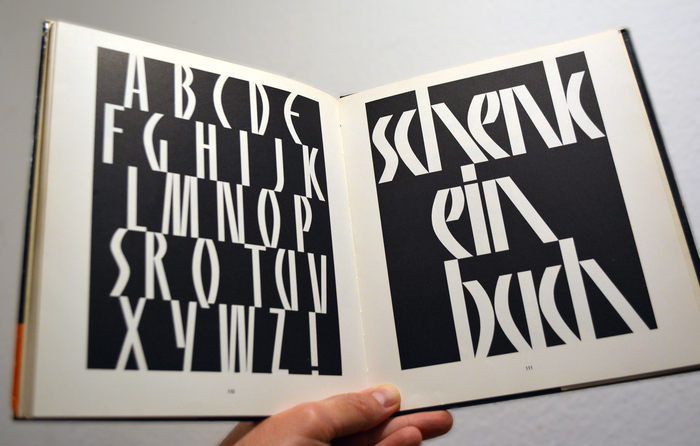 A B C D E
F G H I J K
L M N O P
S R Q T U V
X Y W Z !
110
schenk
ein
buch
111